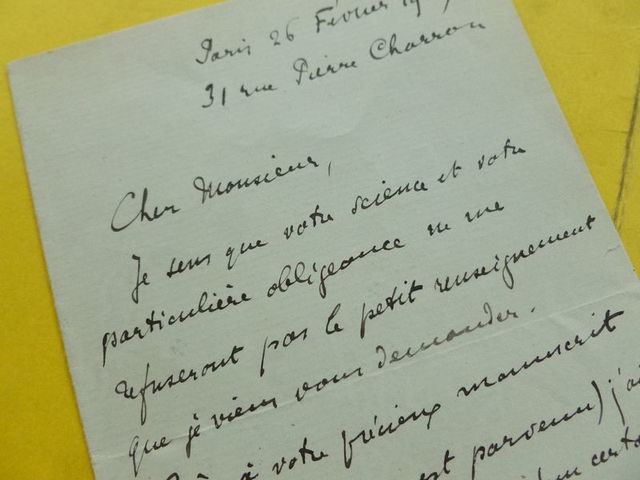 Paris 26 Février 19
31 rue Pierre Charron
Cher Monsieur,
Je sens que votre science et votre
particulière obligeance ne me
refuseront pas le petit renseignement
que je viens vous demander.
à votre précieux manuscrit
est parvenu) j'ai
certa